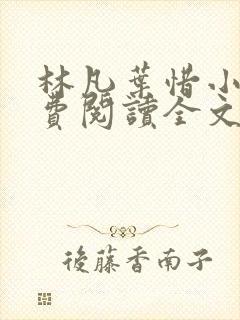 林凡葉惜小
費閱讀全文
後藤香南子